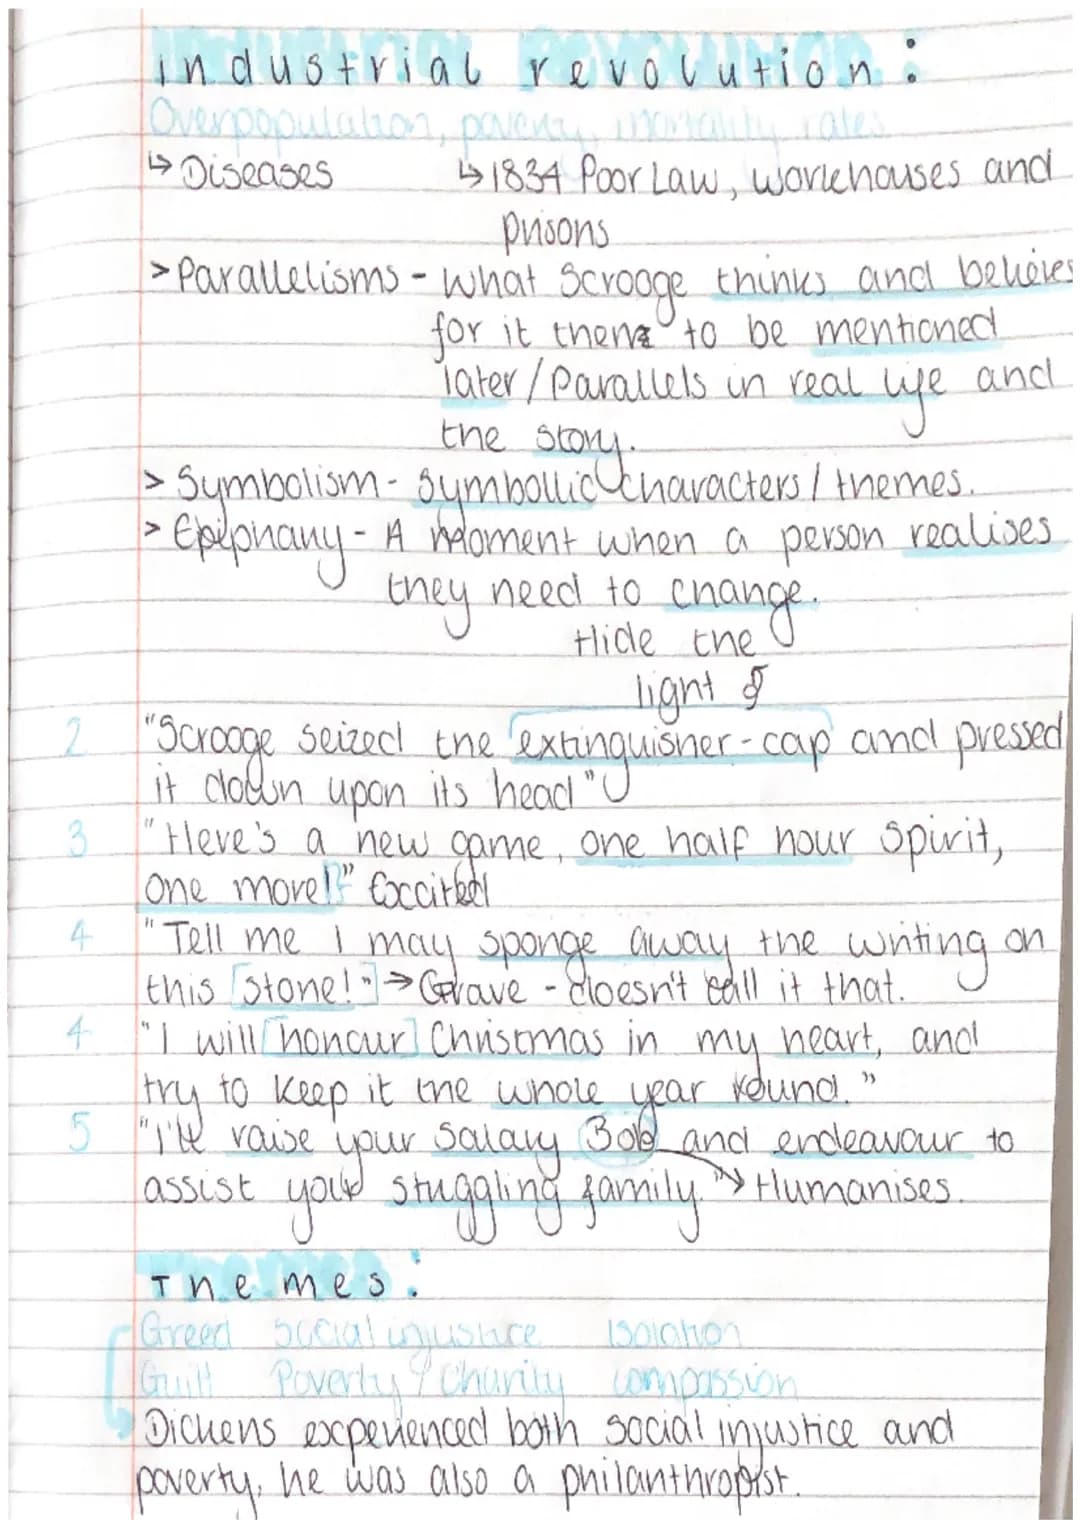 industrial revolution:
Overpopulation, poverty, mortality rates
↳ Diseases ↳ 1834 Poor Law, workhouses and
prisons
> Parallelisms - what Scrooge thinks and believes
for it then to be mentioned
later / Parallels in real life and
the story.
> Symbolism - Symbollic characters / themes.
> Epiphany - A moment when a person realises
they need to change.
Hide the
light
2 "Scrooge seized the extinguisher-cap and pressed
it down upon its head"
3 "Here's a new game, one half hour Spirit,
one more!" Excited
4 "Tell me I may sponge away the writing on
this [stone!"] → Grave - doesn't call it that.
4 "I will [honour] Christmas in my heart, and
try to keep it the whole year round."
5 "I'll raise your salary Bob and endeavour to
assist your struggling family." → Humanises.
Themes:
Greed Social injustice Isolation
Guilt Poverty & Charity compassion
Dickens experienced both social injustice and
poverty, he was also a philanthropist.